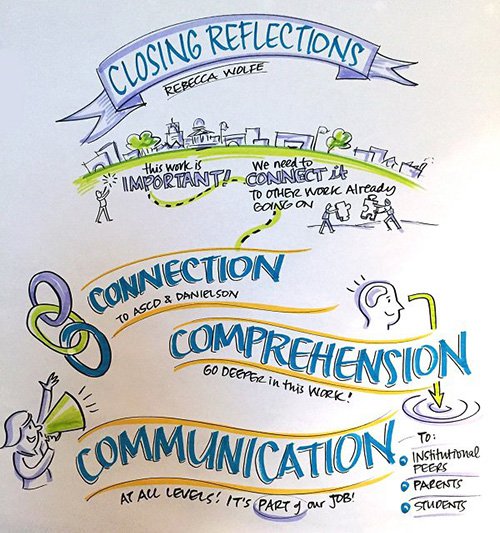 CLOSING REFLECTIONS
REBECCA WOLFE
this work is
IMPORTANT!
We need to
CONNECT it
TO OTHER WORK Already
GOING ON
CONNECTION
TO ASCD & DANIELSON
COMPREHENSION
GO DEEPER in this WORK!
COMMUNICATION
AT ALL LEVELS! IT'S PART of our JOB!
TO:
INSTITUTIONAL
PEERS
PARENTS
STUDENTS